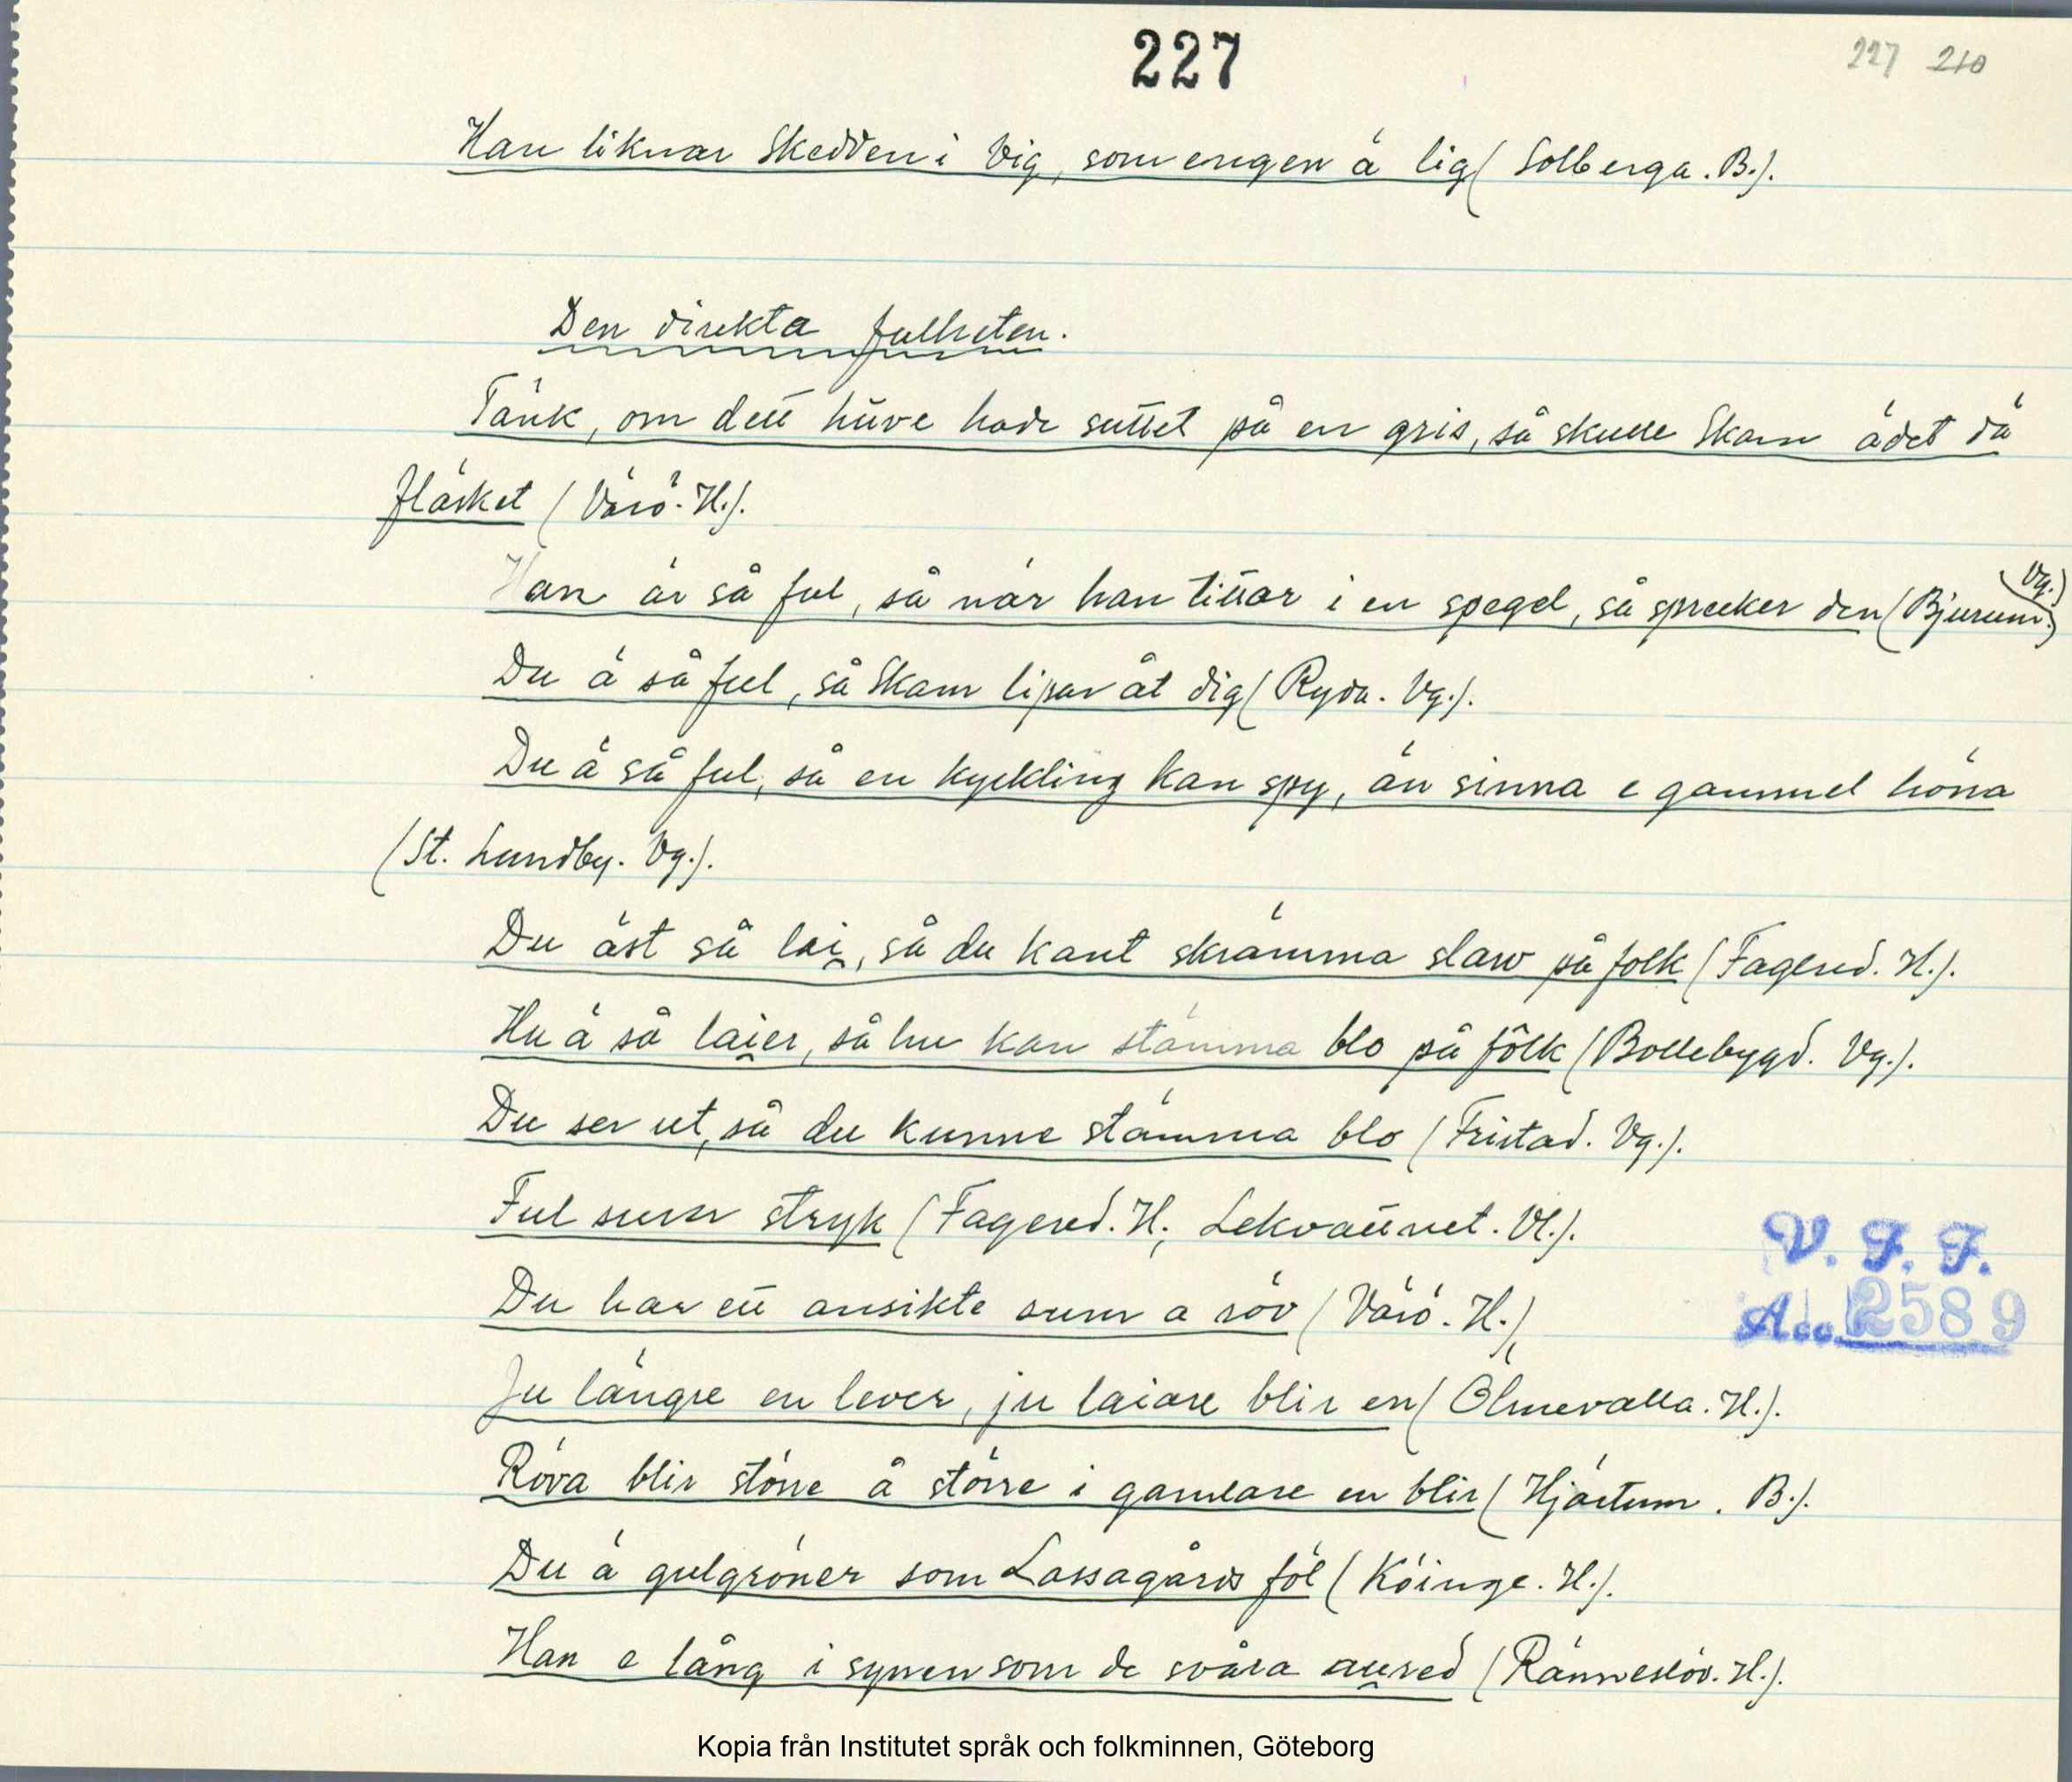 227
227 210
Han liknar Skedden i Vig, som engen ä lig (Solberga. B.).
Den direkta fulheten.
Tänk, om dett hüve hade suttet på en gris, så skulle Skam ädet då
fläsket (Värö. H.).
Han är så ful, så när han tittar i en spegel, så spricker den (Bjurum.
Vg.)
Du ä så ful, så Skam lipar åt dig (Ryda. Vg.).
Du ä så ful, så en kyckling kan spy, än sinna e gammel höna
(St. Lundby. Vg.).
Du äst så lai̯, så du kant skrämma slaw på folk (Fagered. H.).
Hu ä så lai̯er, så hu kan stämma blo på fôlk (Bollebygd. Vg.).
Du ser ut, så du kunne stämma blo (Fristad. Vg.).
Ful summ stryk (Fagered. H.; Lekvattnet. Vl.).
Du har ett ansikte sum a röv (Värö. H.).
Ju längre en lever, ju laiare blir en (Ölmevalla. H.).
Röva blir större å större i gamlare en blir (Hjärtum. B.).
Du ä gulgröner som Lassagårds föl (Köinge. H.).
Han e lång i synen som de svåra au̯red (Ränneslöv. H.).
V. F. F.
Acc. 2589
Kopia från Institutet språk och folkminnen, Göteborg